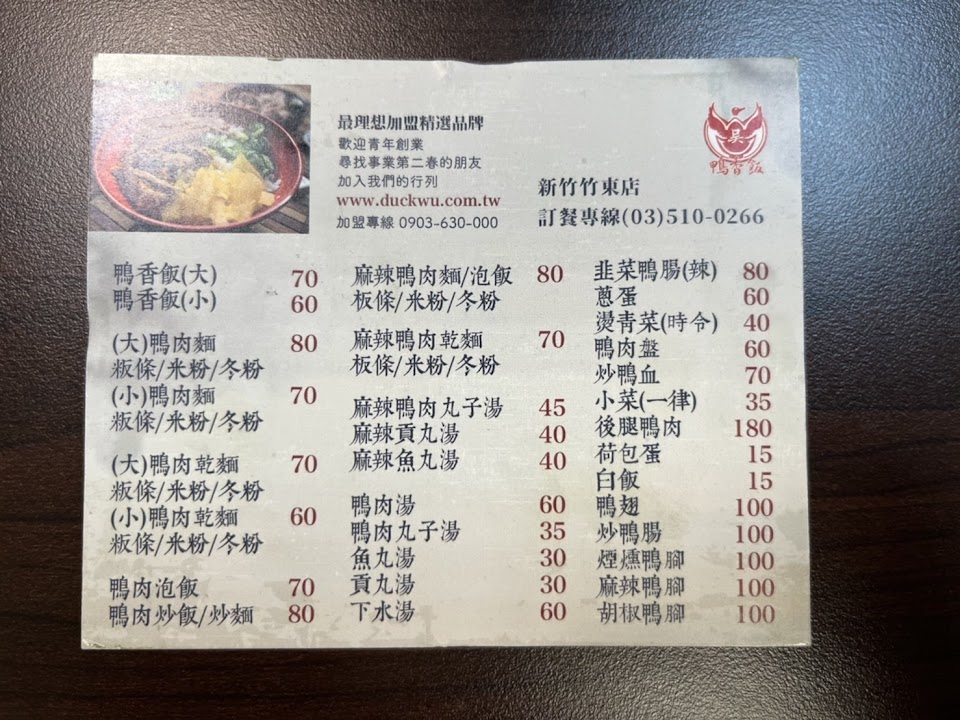 最理想加盟精選品牌
歡迎青年創業
尋找事業第二春的朋友
加入我們的行列
www.duckwu.com.tw
加盟專線 0903-630-000
新竹竹東店
訂餐專線(03)510-0266
吳
鴨香飯
鴨香飯(大) 70
鴨香飯(小) 60
(大)鴨肉麵 80
粄條/米粉/冬粉
(小)鴨肉麵 70
粄條/米粉/冬粉
(大)鴨肉乾麵 70
粄條/米粉/冬粉
(小)鴨肉乾麵 60
粄條/米粉/冬粉
鴨肉泡飯 70
鴨肉炒飯/炒麵 80
麻辣鴨肉麵/泡飯 80
板條/米粉/冬粉
麻辣鴨肉乾麵 70
板條/米粉/冬粉
麻辣鴨肉丸子湯 45
麻辣貢丸湯 40
麻辣魚丸湯 40
鴨肉湯 60
鴨肉丸子湯 35
魚丸湯 30
貢丸湯 30
下水湯 60
韭菜鴨腸(辣) 80
蔥蛋 60
燙青菜(時令) 40
鴨肉盤 60
炒鴨血 70
小菜(一律) 35
後腿鴨肉 180
荷包蛋 15
白飯 15
鴨翅 100
炒鴨腸 100
煙燻鴨腳 100
麻辣鴨腳 100
胡椒鴨腳 100